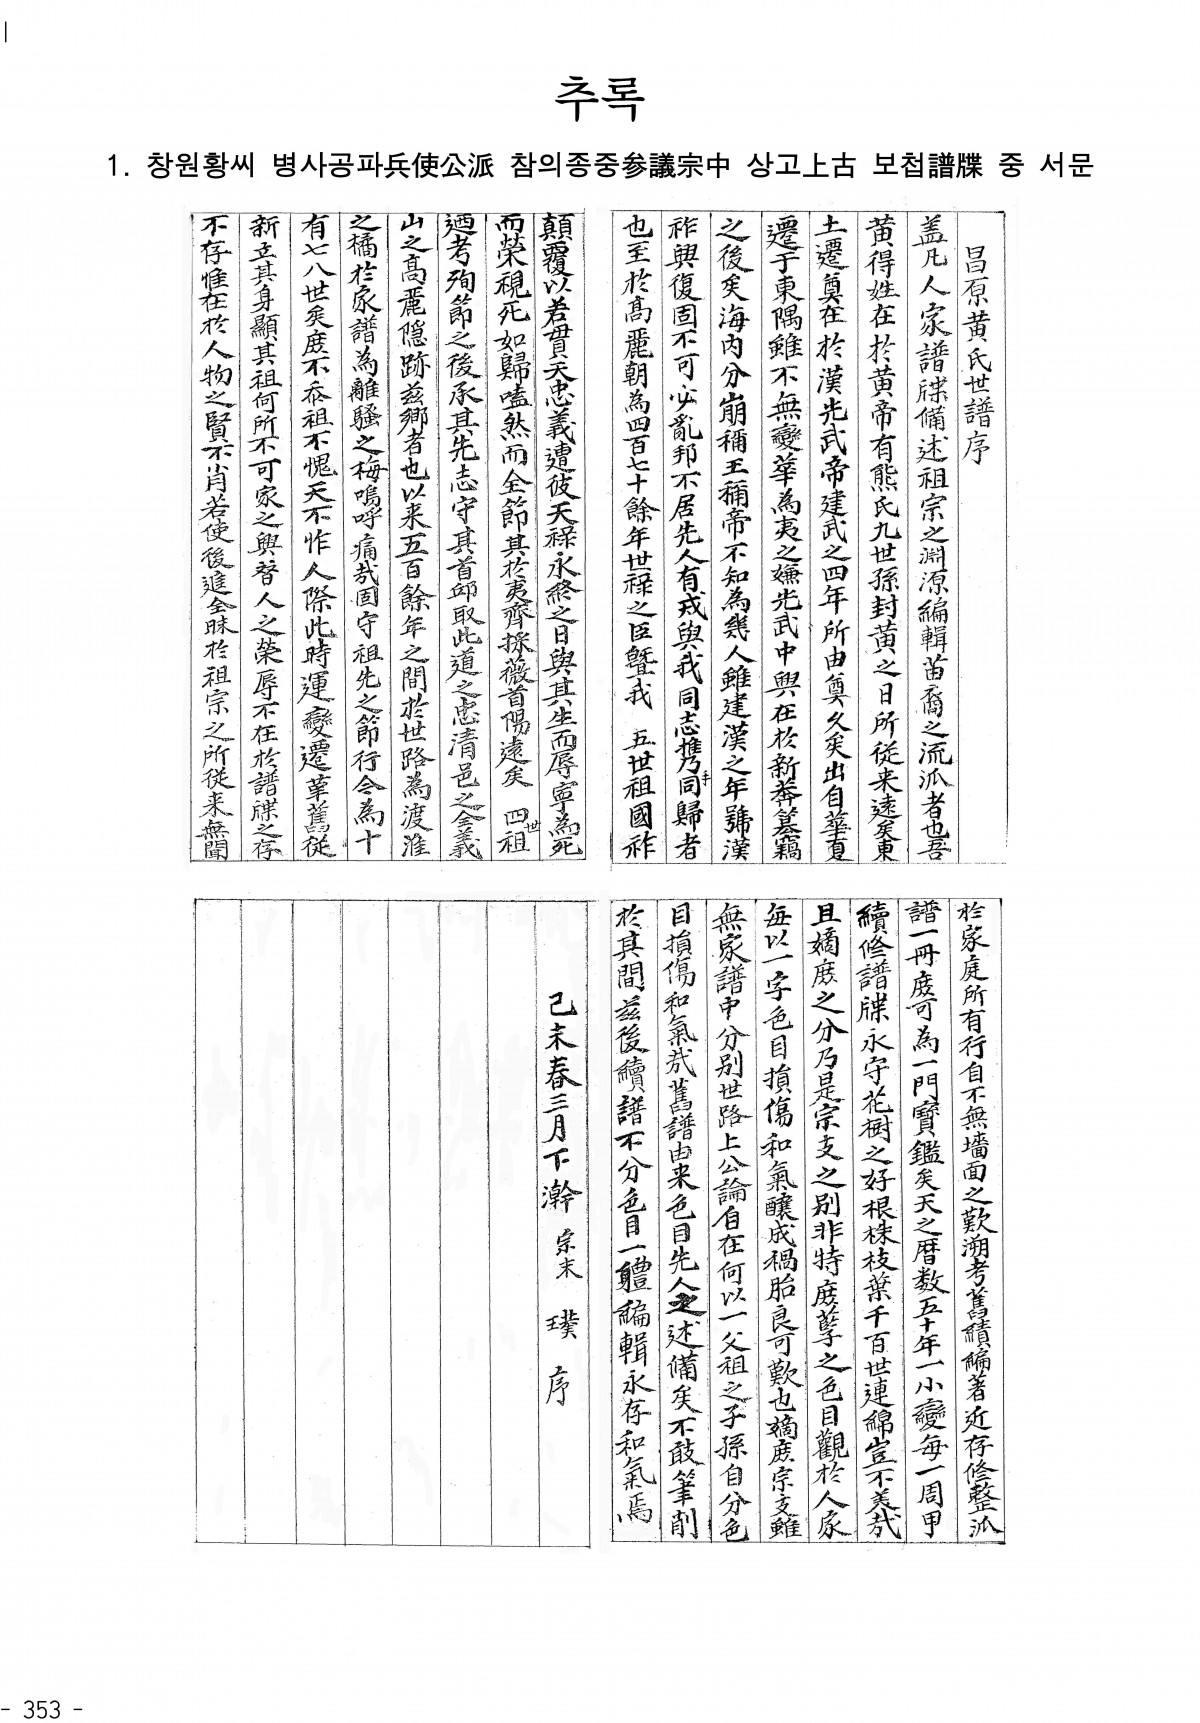 추록
1. 창원황씨 병사공파兵使公派 참의종중參議宗中 상고上古 보첩譜牒 중 서문
昌原黃氏世譜序
盖凡人家譜牒備述祖宗之淵源編輯苗裔之流派者也吾
黃得姓在於黃帝有熊氏九世孫封黃之日所從来遠矣東
土遷奠在於漢光武帝建武之四年所由奠久矣出自華夏
遷于東隅雖不無變華為夷之嫌光武中興在於新莽簒竊
之後矣海內分崩稱王稱帝不知為幾人雖建漢之年號漢
祚興復固不可必亂邦不居先人有戎與我同志携手同歸者
也至於高麗朝為四百七十餘年世祿之臣曁我 五世祖國祚
顚覆以若貫天忠義遭彼天祿永終之日與其生而辱寧為死
而榮視死如歸嗑然而全節其於夷齊採薇首陽遠矣 四世祖
迺考殉節之後承其先志守其首邱取此道之忠清邑之全義
山之高麗隱跡玆鄕者也以来五百餘年之間於世路為渡淮
之橘於家譜為離騷之梅嗚呼痛哉固守祖先之節行今為十
有七八世矣庶不忝祖不愧天不怍人際此時運變遷革舊從
新立其身顯其祖何所不可家之興替人之榮辱不在於譜牒之存
不存惟在於人物之賢不肖若使後進全昧於祖宗之所從来無聞
於家庭所有行自不無墻面之歎溯考舊績編著近存修整派
譜一冊庶可為一門寶鑑矣天之曆数五十年一小變每一周甲
續修譜牒永守花樹之好根株枝葉千百世連綿豈不美哉
且嫡庶之分乃是宗支之別非特庶孼之色目觀於人家
每以一字色目損傷和氣釀成禍胎良可歎也嫡庶宗支雖
無家譜中分別世路上公論自在何以一父祖之子孫自分色
目損傷和氣哉舊譜由来色目先人之述備矣不敢筆削
於其間玆後續譜不分色目一軆編輯永存和氣焉
己未春三月下澣 宗末 璞 序
- 353 -